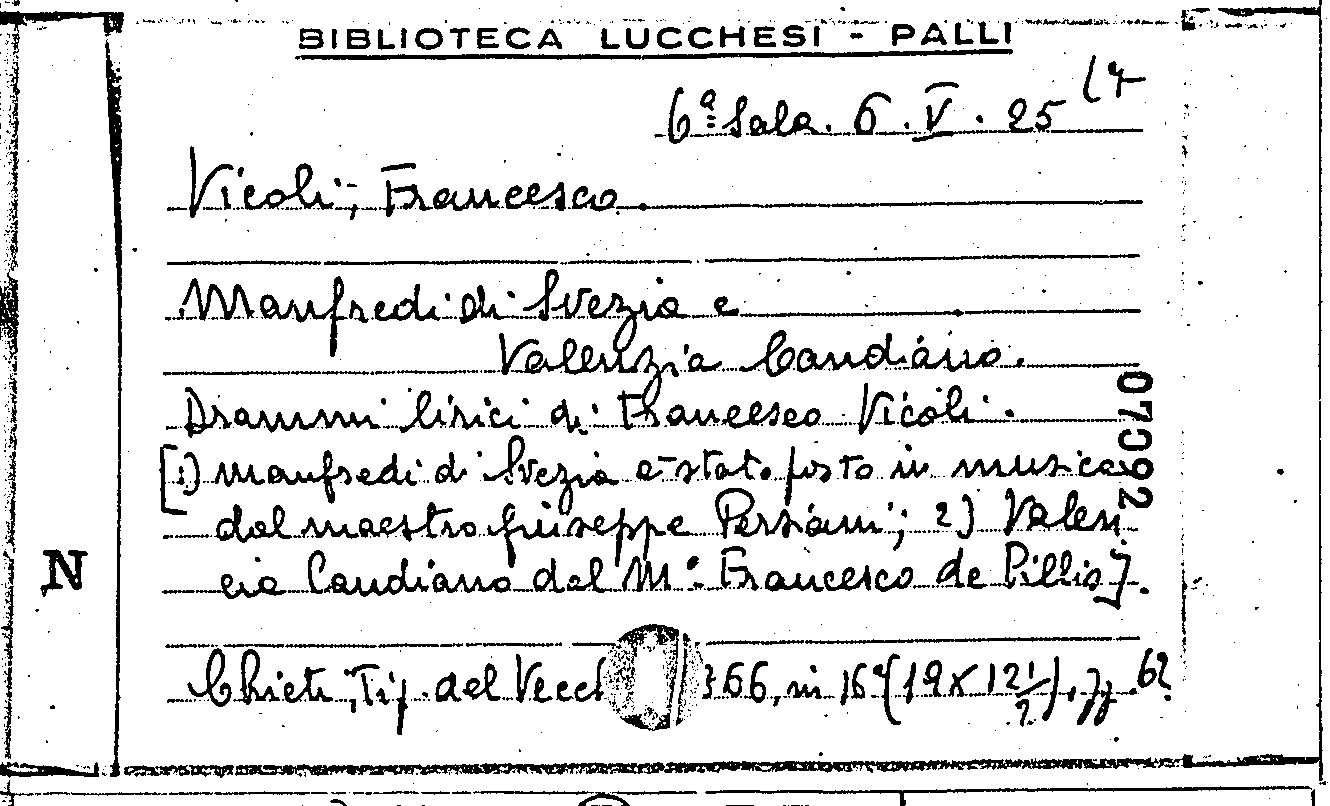 BIBLIOTECA LUCCHESI - PALLI
6ª Sala. 6. V. 25 (4
Vicoli, Francesco.
Manfredi di Svezia e
Valenzia Candiano.
Drammi lirici di Francesco Vicoli.
[1) Manfredi di Svezia è stato posto in musica
dal maestro Giuseppe Persiani; 2) Valen
cia Candiano dal M°. Francesco de Pillis].
Chieti, Tip. del Vecch 66, in 16° (19 X 12 1/2), pp. 62
07092
N